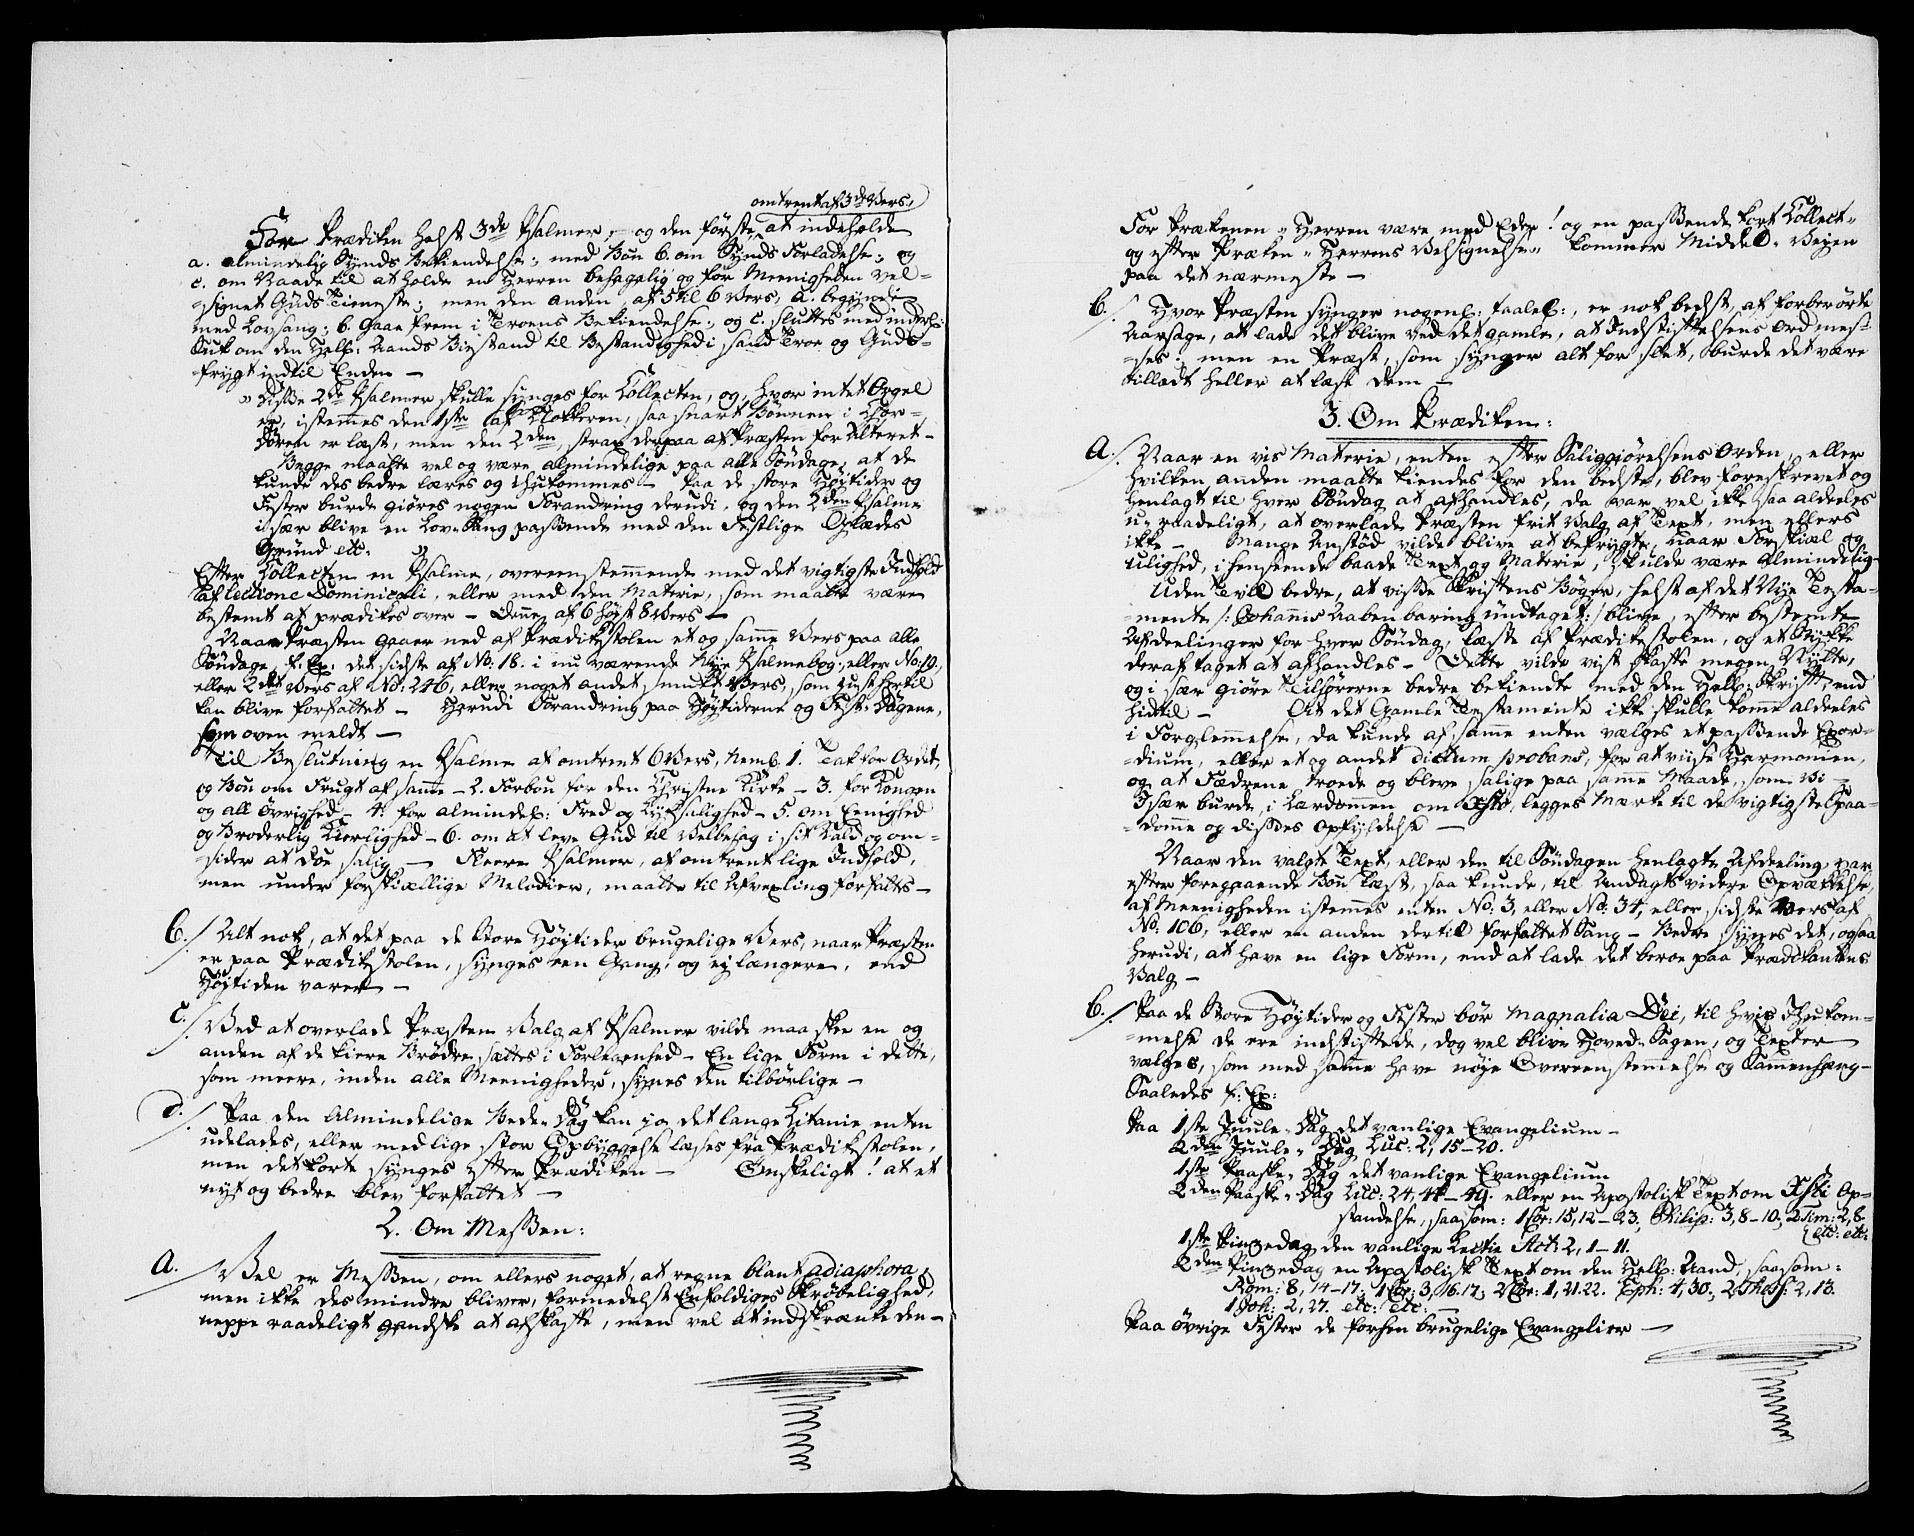 omtrent af 3de Vers,
For Prædiken helst 3de Psalmer, og den første, at indeholde
a. almindelig Synds Bekiendelse, med Bøn b. om Synds Forladelse, og
c. om Naade til at holde en Herren behagelig og for Meenigheden vel-
-signet Guds Tieneste; men den anden, af 5 til 6 Vers, a. begynde
med Lovsang; b. gaae frem i Troens Bekiendelse; og c. sluttes med inderl:
Suk om den Hell: Aands Bistand til Bestandighed i sand Troe og Guds-
frygt indtil Enden —
Disse 2de Psalmer skulle synges for Collecten, og, hvor intet Orgel
er, istemmes den 1ste af Klokkeren, saa snart Bønnen i Chor-
Døren er læst, men den 2den, strax derpaa af Præsten for Alteret —
Begge maatte vel og være almindelige paa alle Søndage, at de
kunde des bedre læres og ihukommes — Paa de store Høitider og
Fester burde giøres nogen Forandring derudi, og den 2den Psalme
især blive en Lov-Sang passende med den Festlige Glædes
Grund etc.
Efter Collecten en Psalme, overeenstemmende med det vigtigste Indhold
af lectione Dominicali, eller med den Materie, som maatte være
bestemt at prædikes over — Denne af 6 høist 8 Vers —
Naar Præsten gaaer ned af Prædikestolen et og samme Vers paa alle
Søndage, f. Ex: det sidste af No. 18. i nu værende Nye Psalmebog, eller No: 19,
eller 2det Vers af No: 246, eller noget andet smukt Vers, som hertil
kan blive forfattet — Herudi Forandring paa Høytiderne og Fest-Dagene,
som oven meldt —
Til Beslutning en Psalme af omtrent 6 Vers, neml. 1. Tak for Ordet,
og Bøn om Frugt af samme — 2. Forbøn for den Christne Kirke — 3. for Kongen
og all Øvrighed — 4. for almindel: Fred og Lyksalighed — 5. om Eenighed
og Broderlig Kierlighed — 6. om at leve Gud til Velbehag i sit Kald og om-
-sider at Døe salig — Fleere Psalmer, af omtrent lige Indhold,
men under forskiællige Melodier, maatte til Afvexling forfattes —
b./ Alt nok, at det paa de Store Høytider brugelige Vers, naar Præsten
er paa Prædikestolen, synges een Gang, og ej længere, end
Høytiden varer —
c./ Ved at overlade Præsten Valg af Psalmer vilde maa skee en og
anden af de kiere Brødre sættes i Forlegenhed — En lige Form i dette,
som meere, inden alle Meenigheder, synes den tilbørlige —
d./ Paa den Almindelige Bede-Dag kan jo det lange Litanie enten
udelades, eller med lige stor Opbyggelse læses fra Prædikestolen,
men det korte synges efter Prædiken — Ønskeligt! at et
nyt og bedre blev forfattet —
2. Om Messen:
a. Vel er Messen, om ellers noget, at regne blant adiaphora,
men ikke des mindre bliver, formedelst Eenfoldiges Skrøbelighed,
neppe raadeligt gandske at afskaffe, men vel at indskrænke den —
For Prækenen "Herren være med Eder! og en passende kort Collect"
og efter Præken "Herrens Velsignelse" kommer Middel-Veyen
paa det nærmeste —
b./ Hvor Præsten synger nogenl: taalel:, er nok bedst, af forberørte
Aarsage, at lade det blive ved det gamle, at Indstiftelsens Ord mes-
-ses; men en Præst, som synger alt for slet, burde det være
tilladt heller at læse dem —
3. Om Prædiken:
a./ Naar en vis Materie, enten efter Saliggiørelsens Orden, eller
hvilken anden maatte kiendes for den bedste, blev foreskrevet og
henlagt til hver Søndag at afhandles, da var vel ikke saa aldeeles
u-raadeligt, at overlade Præsten frit Valg af Text, men ellers
ikke — Mange Anstød vilde blive at befrygte, naar Forskiæl og
Ulighed, i henseende baade Text og Materie, skulde være Almindelig —
Uden Tvil bedre, at visse Skriftens Bøger, helst af det Nye Testa-
-mente /: Johannis Aabenbaring undtaget :/ bliver, efter bestemte
Afdeelinger for hver Søndag, læste af Prædikestolen, og et Stykke
deraf taget at afhandles — Dette vilde vist skaffe megen Nytte,
og i sær giøre Tilhørerne bedre bekiendte med den Hell: Skrift, end
hidtil — At det Gamle Testamente ikke skulle komme aldeeles
i Forglemmelse, da kunde af samme enten vælges et passende Exor-
-dium, eller et og andet dictum probans, for at viise Harmonien,
og at Fædrene troede og bleve salige paa samme Maade, som Vi —
Især burde, i Lærdommen om Xsto, legges Mærke til de vigtigste Spaa-
-domme og dissses Opfyldelse —
Naar den valgte Text, eller den til Søndagen henlagte Afdeeling, var
efter foregaaende Bøn læst, saa kunde, til Andagts videre Opvækkelse,
af Meenigheden istemmes enten No: 3, eller No: 34, eller sidste Vers af
No. 106, eller en anden dertil forfattet Sang — Bedre synes det, ogsaa
herudi, at have en lige Form, end at lade det beroe paa Prædikantens
Valg —
b./ Paa de Store Høytider og Fester bør Magnalia Dei, til hvis Ihukom-
-melse de ere indstiftede, dog vel blive Hoved-Sagen, og Texter
vælges, som med samme have nøye Overeenstemmelse og Sammenhæng —
Saaledes f: Ex:
Paa 1ste Juule-Dag det vanlige Evangelium —
2den Juule-Dag Luc: 2, 15-20.
1ste Paaske-Dag det vanlige Evangelium
2den Paaske-Dag Luc: 24, 44-49. eller en Apostolisk Text om Xsti Op-
standelse, saasom: 1 Cor: 15, 12-23. Philip: 3, 8-10, 2 Tim: 2, 8
etc: etc:
1ste Pintzedag den vanlige Lectie Act: 2, 1-11.
2den Pintzedag en Apostolisk Text om den Hell: Aand, saasom:
Rom: 8, 14-17. 1 Cor: 3, 16.17. 2 Cor: 1, 21.22. Eph: 4, 30., 2 Thess: 2, 13.
1 Joh: 2, 27. etc: etc: —
Paa øvrige Fester de forhen brugelige Evangelier —